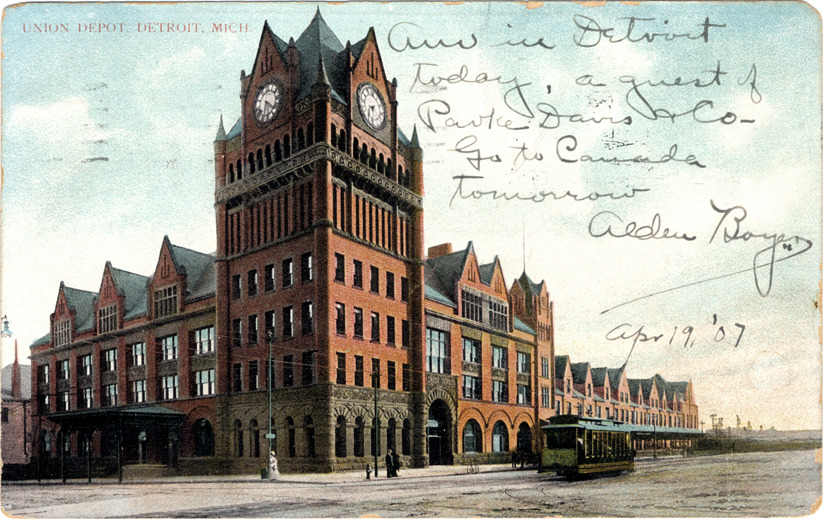 UNION DEPOT, DETROIT, MICH
Am in Detroit
today, a guest of
Parke Davis & Co-
Go to Canada
tomorrow
Alden
Apr 19, '07